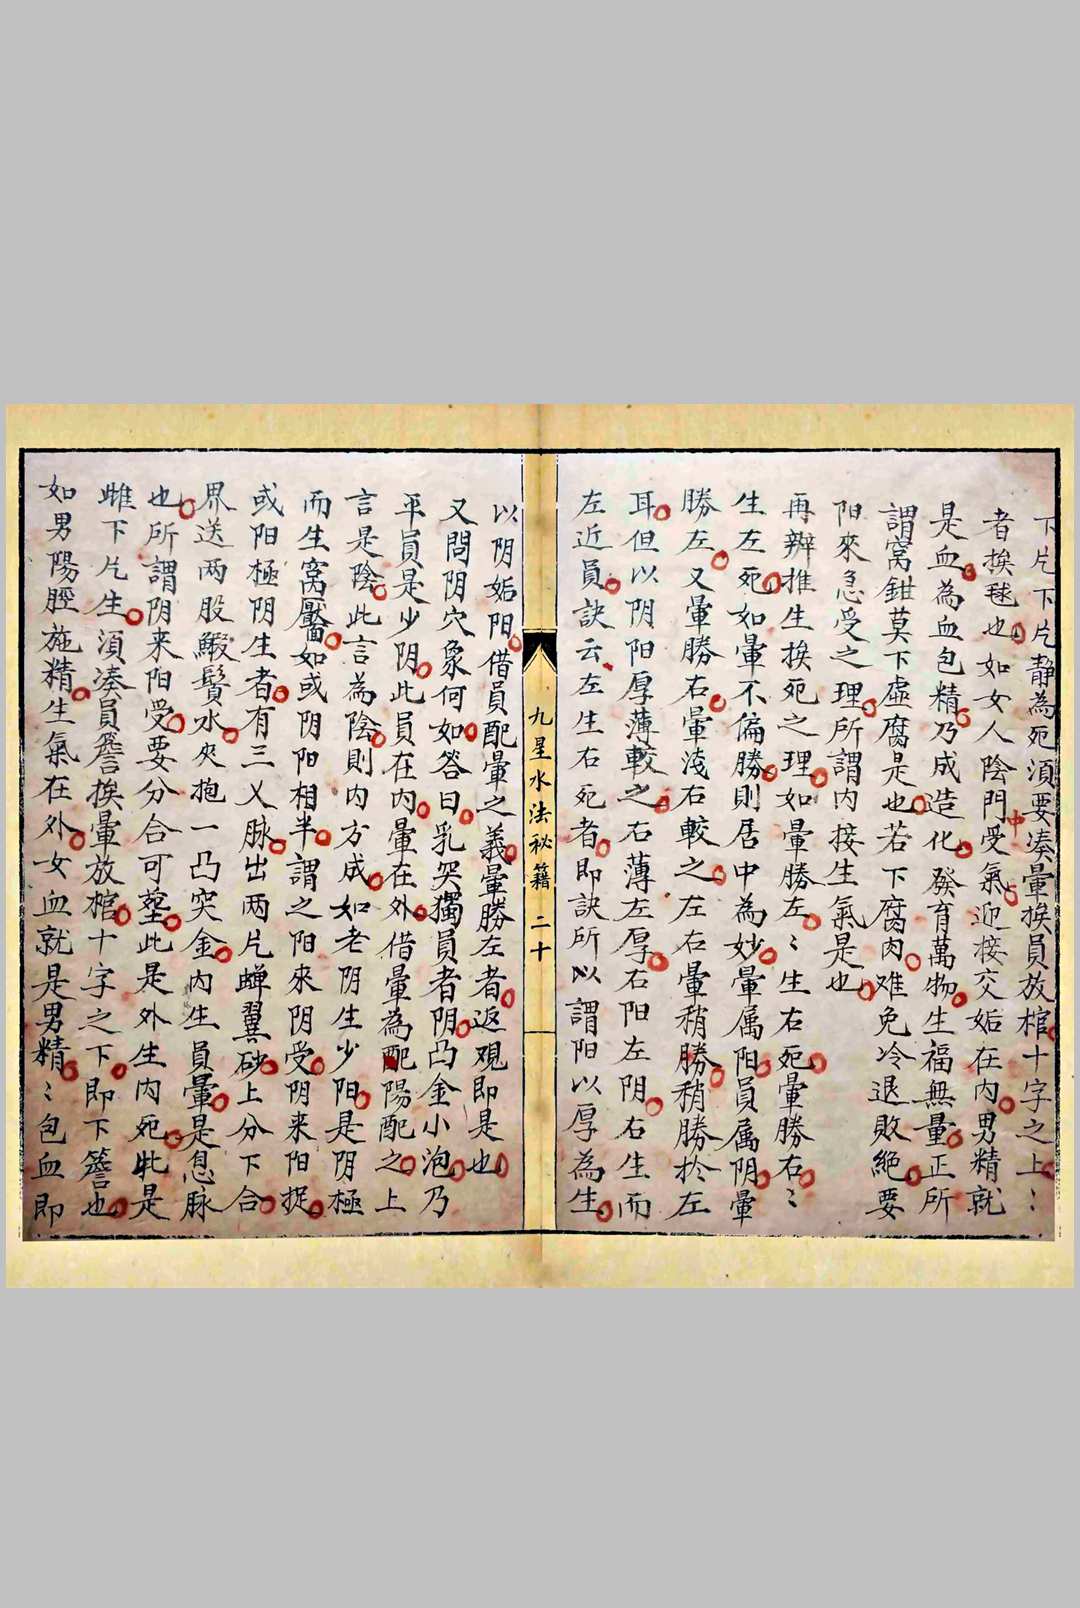 下片下片静為死須要凑暈挨員放棺十字之上〻
者挨毬也如女人陰門受氣迎接交姤在内男精就
是血為血包精乃成造化發育萬物生福無量正所
謂窩鉗莫下虛腐是也若下腐肉难免冷退敗絕要
阳來急受之理所謂内接生氣是也
再辨推生挨死之理如暈勝左〻生右死暈勝右〻
生左死如暈不偏勝則居中為妙暈属阳員属阴暈
勝左又暈勝右暈淺右較之左右暈稍勝稍勝於左
耳但以阴阳厚薄較之右薄左厚右阳左阴右生而
左近員訣云左生右死者即訣所以謂阳以厚為生
九星水法秘籍 二十
以阴姤阳借員配暈之義暈勝左者返覌即是也
又問阴穴象何如答曰乳突獨員者阴凸金小泡乃
平員是少阴此員在内暈在外借暈為配陽配之上
言是陰此言為陰則内方成如老阴生少阳是阴極
而生窩靨如或阴阳相半謂之阳來阴受阴来阳捉
或阳極阴生者有三乂脉出两片蟬翼砂上分下合
界送两股鰕鬚水夾抱一凸突金内生員暈是息脉
也所謂阴来阳受要分合可塟此是外生内死牝是
雌下片生須凑員簷挨暈放棺十字之下即下簷也
如男陽脛施精生氣在外女血就是男精〻包血即